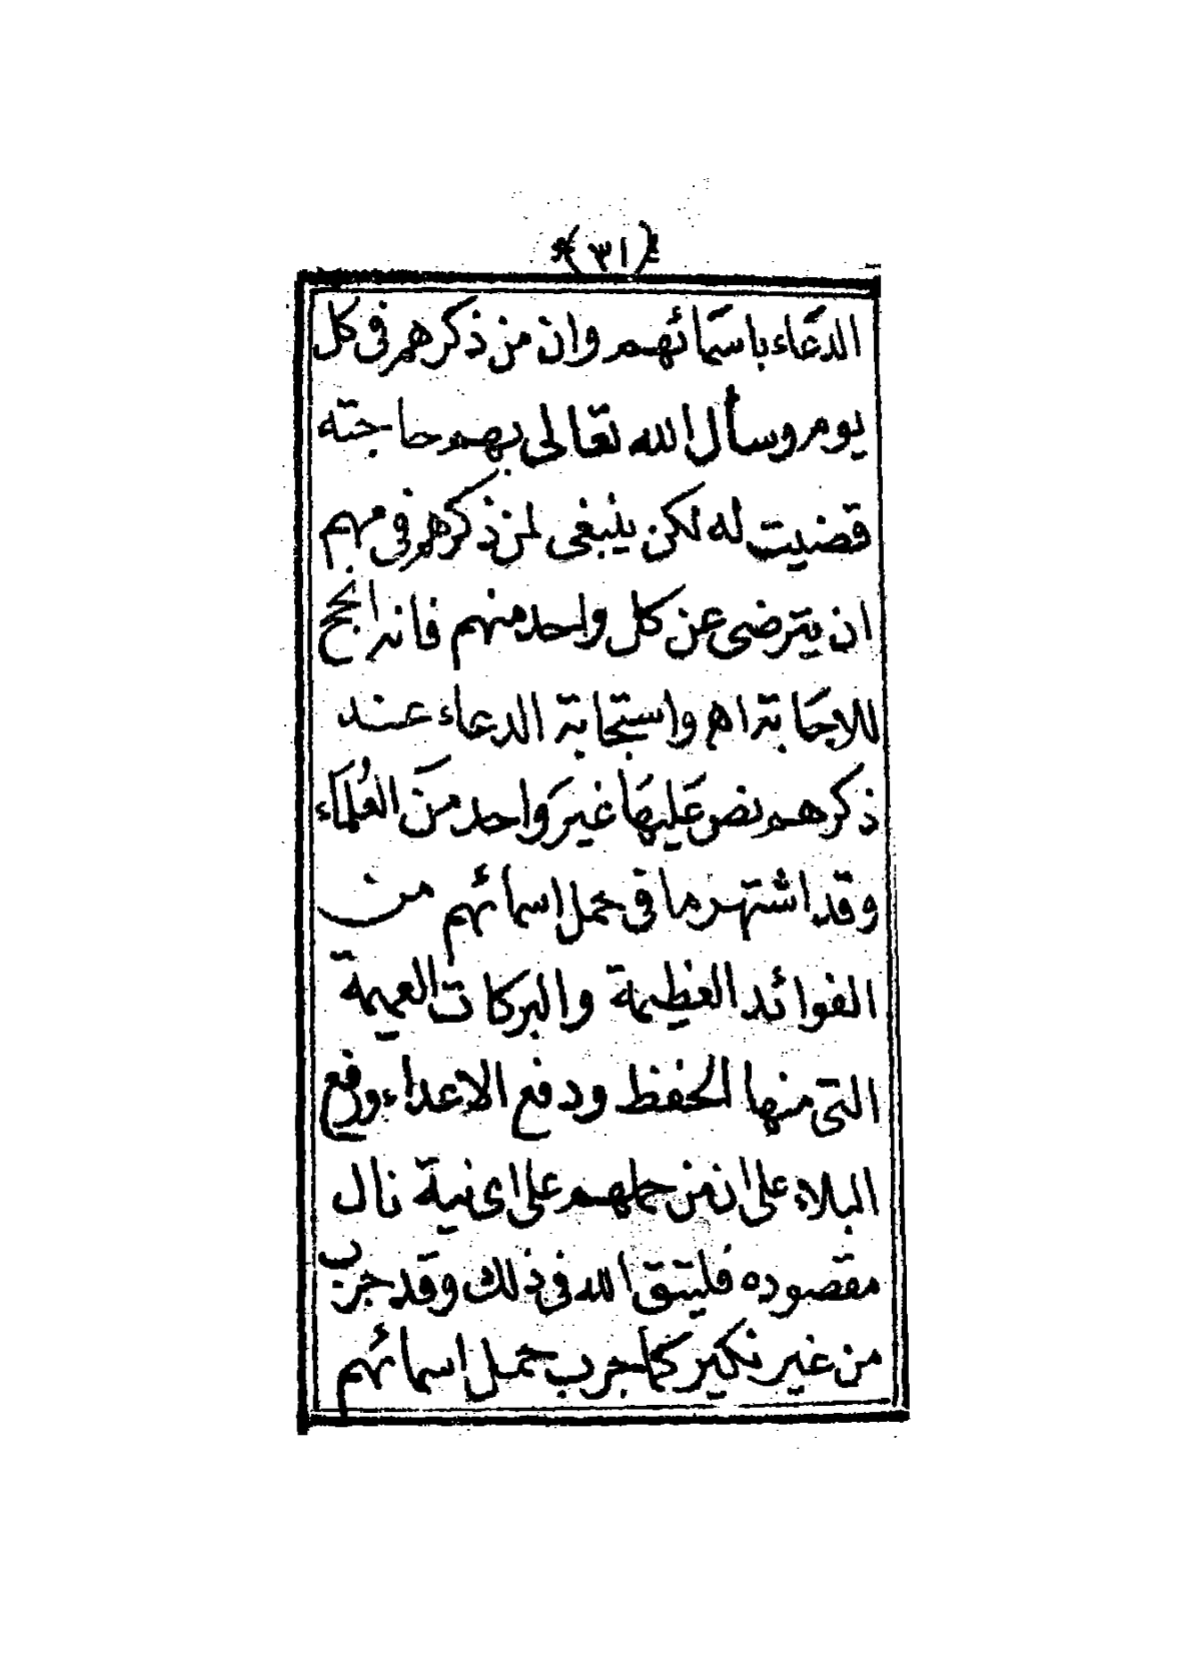 ﴿٣١﴾
الدعاء باسمائهم وان من ذكرهم فى كل
يوم وسأل الله تعالى بهم حاجته
قضيت له لكن ينبغى لمن ذكرهم فى مهم
ان يترضى عن كل واحد منهم فانه انجح
للاجابة اهـ واستجابة الدعاء عند
ذكرهم نص عليها غير واحد من العلماء
وقد اشتهر ما فى حمل اسمائهم من
الفوائد العظيمة والبركات العميمة
التى منها الحفظ ودفع الاعداء ورفع
البلاء على ان من حملهم على اى نية نال
مقصوده فليتق الله فى ذلك وقد جرب
من غير نكير كما جرب حمل اسمائهم